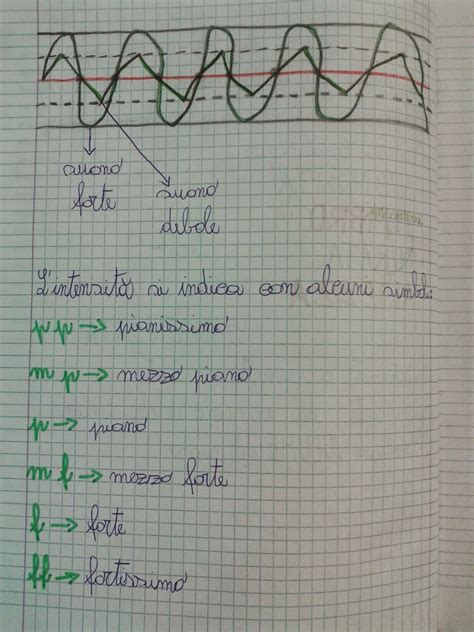 suono
forte
suono
debole
L'intensità si indica con alcuni simboli:
pp → pianissimo
mp → mezzo piano
p → piano
mf → mezzo forte
f → forte
ff → fortissimo